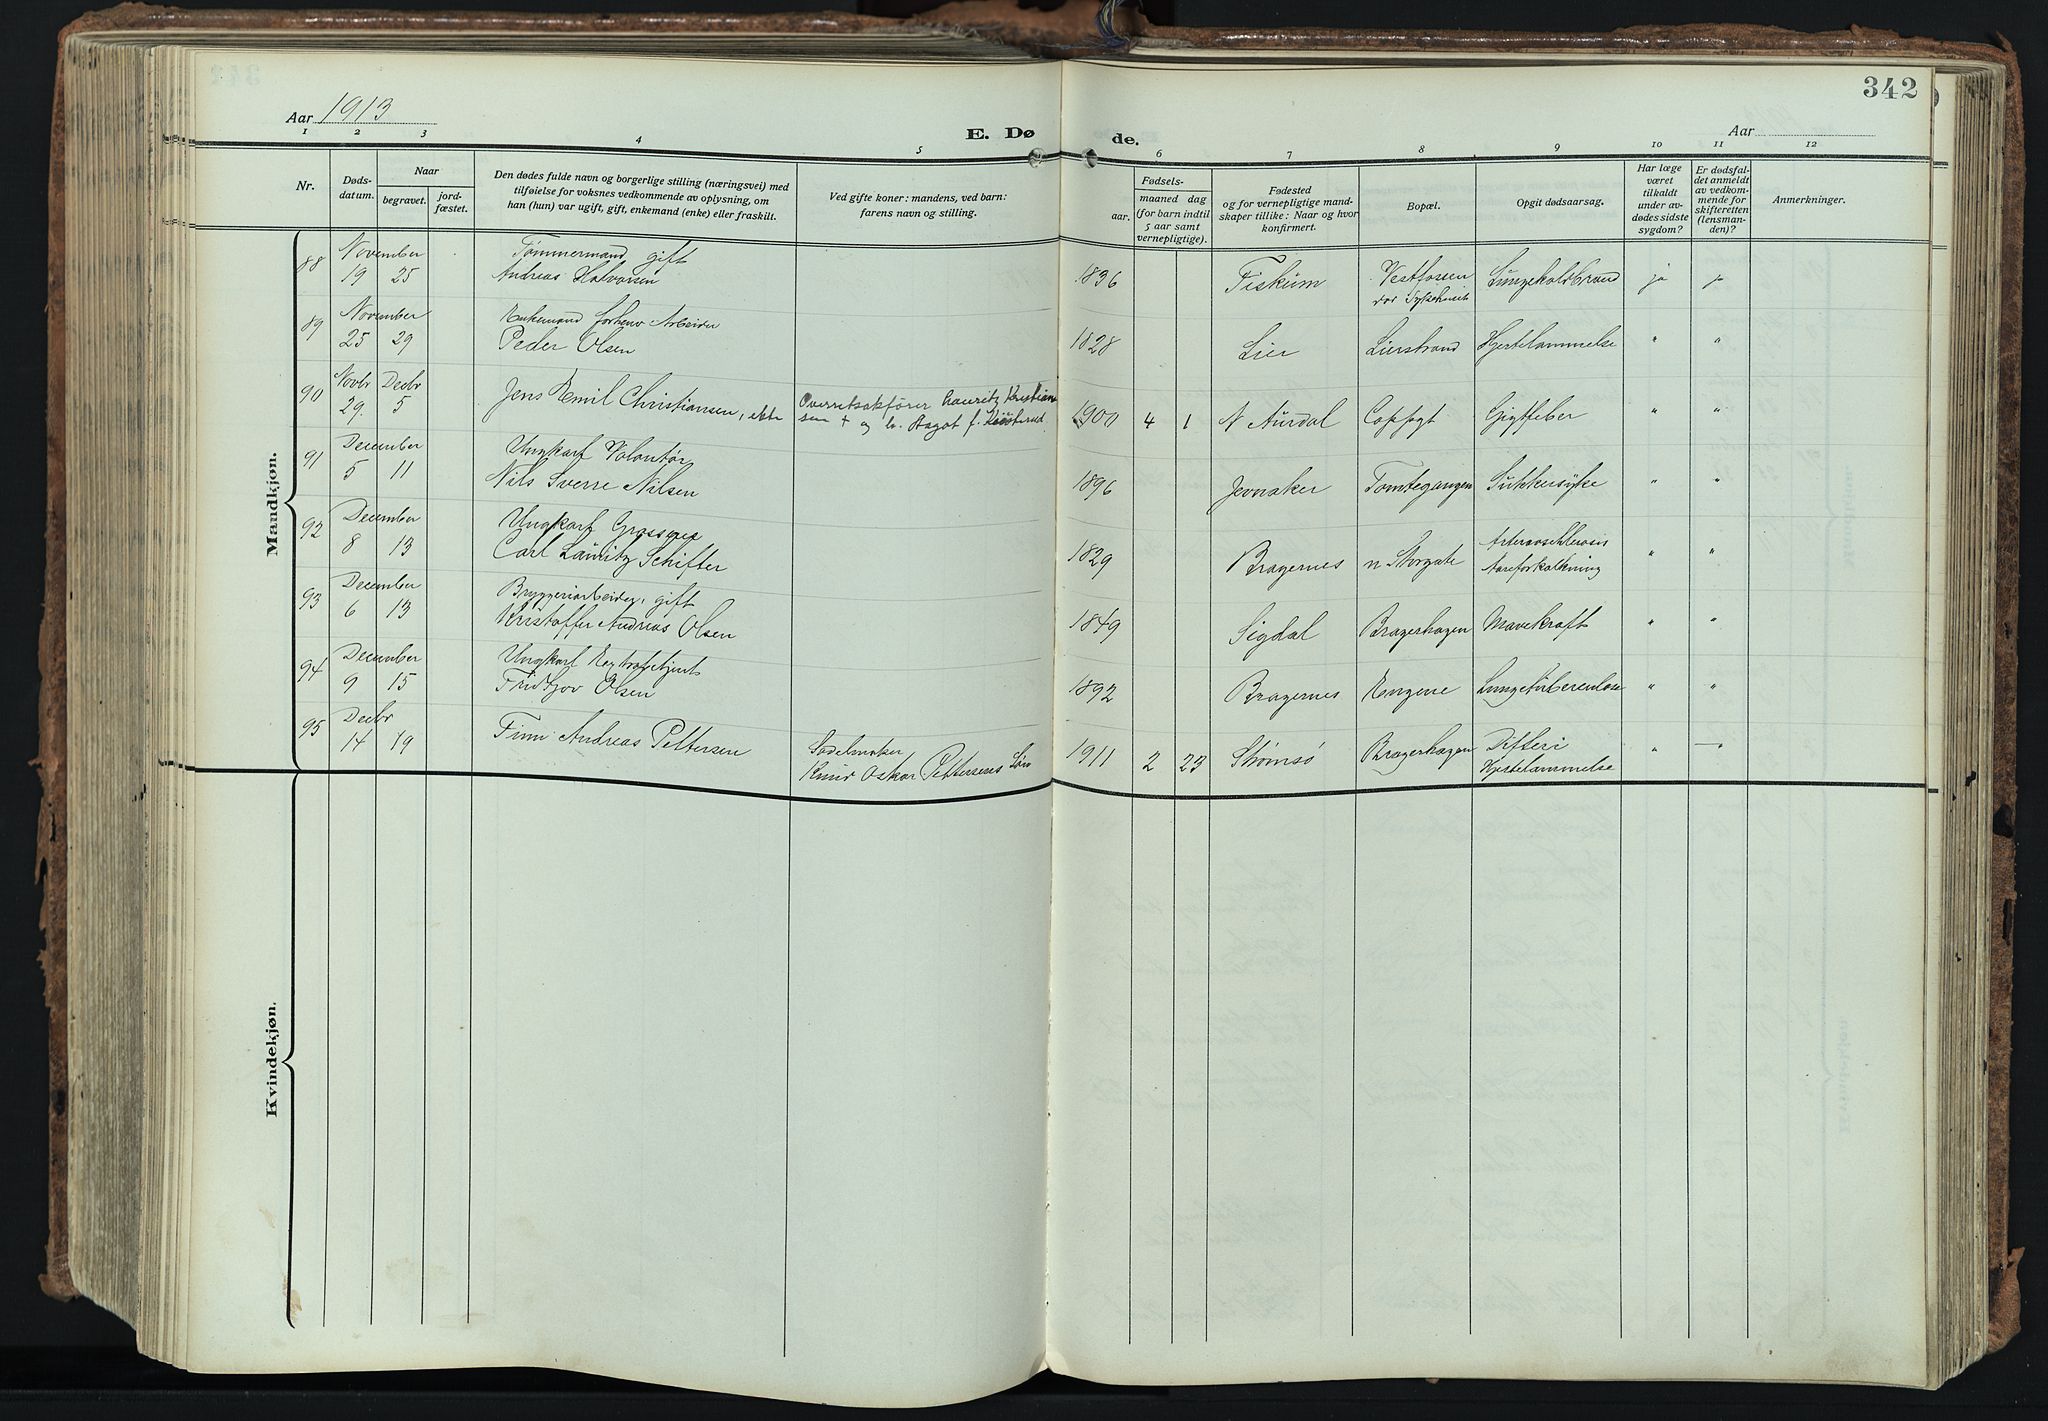 342
Aar 1913
Aar
E. Dø
de.
1 2 3 4 5 6 7 8 9 10 11 12
Nr.
Døds-
datum.
Naar
begravet.
jord-
fæstet.
Den dødes fulde navn og borgerlige stilling (næringsvei) med
tilføielse for voksnes vedkommende av oplysning, om
han (hun) var ugift, gift, enkemand (enke) eller fraskilt.
Ved gifte koner: mandens, ved barn:
farens navn og stilling.
Fødsels-
aar.
maaned dag
(for barn indtil
5 aar samt
vernepligtige).
Fødested
og for vernepligtige mand-
skaper tillike: Naar og hvor
konfirmert.
Bopæl.
Opgit dødsaarsag.
Har læge
været
tilkaldt
under av-
dødes sidste
sygdom?
Er dødsfal-
det anmeldt
av vedkom-
mende for
skifteretten
(lensman-
den)?
Anmerkninger.
Mandkjøn.
88 November Tømmermand gift
19 25 Andreas Halvorsen 1836 Fiskum Vestfossen Lungekoldbrand ja ja
89 November Enkemand forhenv Arbeider
25 29 Peder Olsen 1828 Lier Lierstrand Hjertelammelse " "
90 Novbr Decbr Jens Emil Christiansen, ekte Overretsakfører Lauritz Kristian-
29. 5 sen + og h. Dagot f. 1900 4 1 N Aurdal Gigtfeber " "
91 December Ungkarl Volontør
5 11 Nils Sverre Nilsen 1896 Jevnaker Tomtegangen Sukkersyke " "
92 December Ungkarl
8 13 Carl Lauritz Schifter 1829 Bragernes n Storgate Arteriosclerosis " "
Aareforkalkning
93 December Bryggeriarbeider, gift
6 13 Kristoffer Andreas Olsen 1849 Sigdal Bragerhagen Mavekræft " "
94 December Ungkarl Extrabetjent
9 15 Fridtjov Olsen 1892 Bragernes Engene Lungetuberculose " "
95 Decbr Finn Andreas Pettersen Sadelmaker
14 19 Knud Oskar Pettersens Søn 1911 2 23 Strømsø Bragerhagen Difteri " —"
Hjertelammelse
Kvindekjøn.